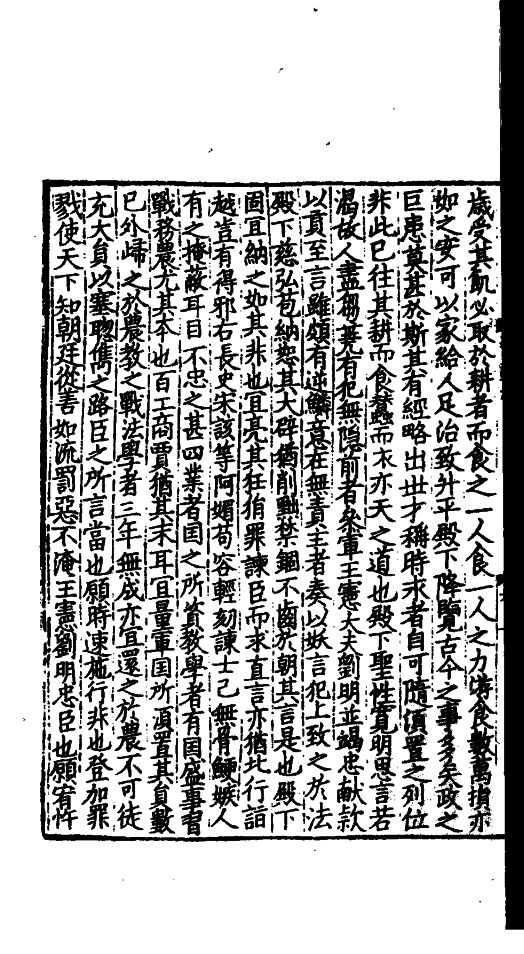 歲受其飢必取於耕者而食之一人食一人之力遊食數萬損亦
如之安可以家給人足治致升平殿下降覽古今之事多矣政之
巨患莫甚於斯其有經略出世才稱時求者自可隨須置之列位
非此已往其耕而食蠶而衣亦天之道也殿下聖性寬明思言若
渴故人盡芻蕘有犯無隱前者叅軍王憲大夫劉明並竭忠献款
以貢至言雖頗有逆鱗意在無責主者奏以妖言犯上致之於法
殿下慈弘苞納恕其大辟猶削黜禁錮不齒於朝其言是也殿下
固冝納之如其非也冝亮其狂狷罪諫臣而求直言亦猶北行詣
越豈有得邪右長史宋該等阿媚苟容輕刻諫士己無骨鯁嫉人
有之掩蔽耳目不忠之甚四業者国之所資教學者有国盛事習
戰務農尤其本也百工商賈猶其末耳冝量軍国所須置其貟數
已外歸之於農教之戰法學者三年無成亦冝還之於農不可徒
充大貟以塞聦儁之路臣之所言當也願時速施行非也登加罪
戮使天下知朝廷從善如流罰惡不淹王憲劉明忠臣也願宥忤